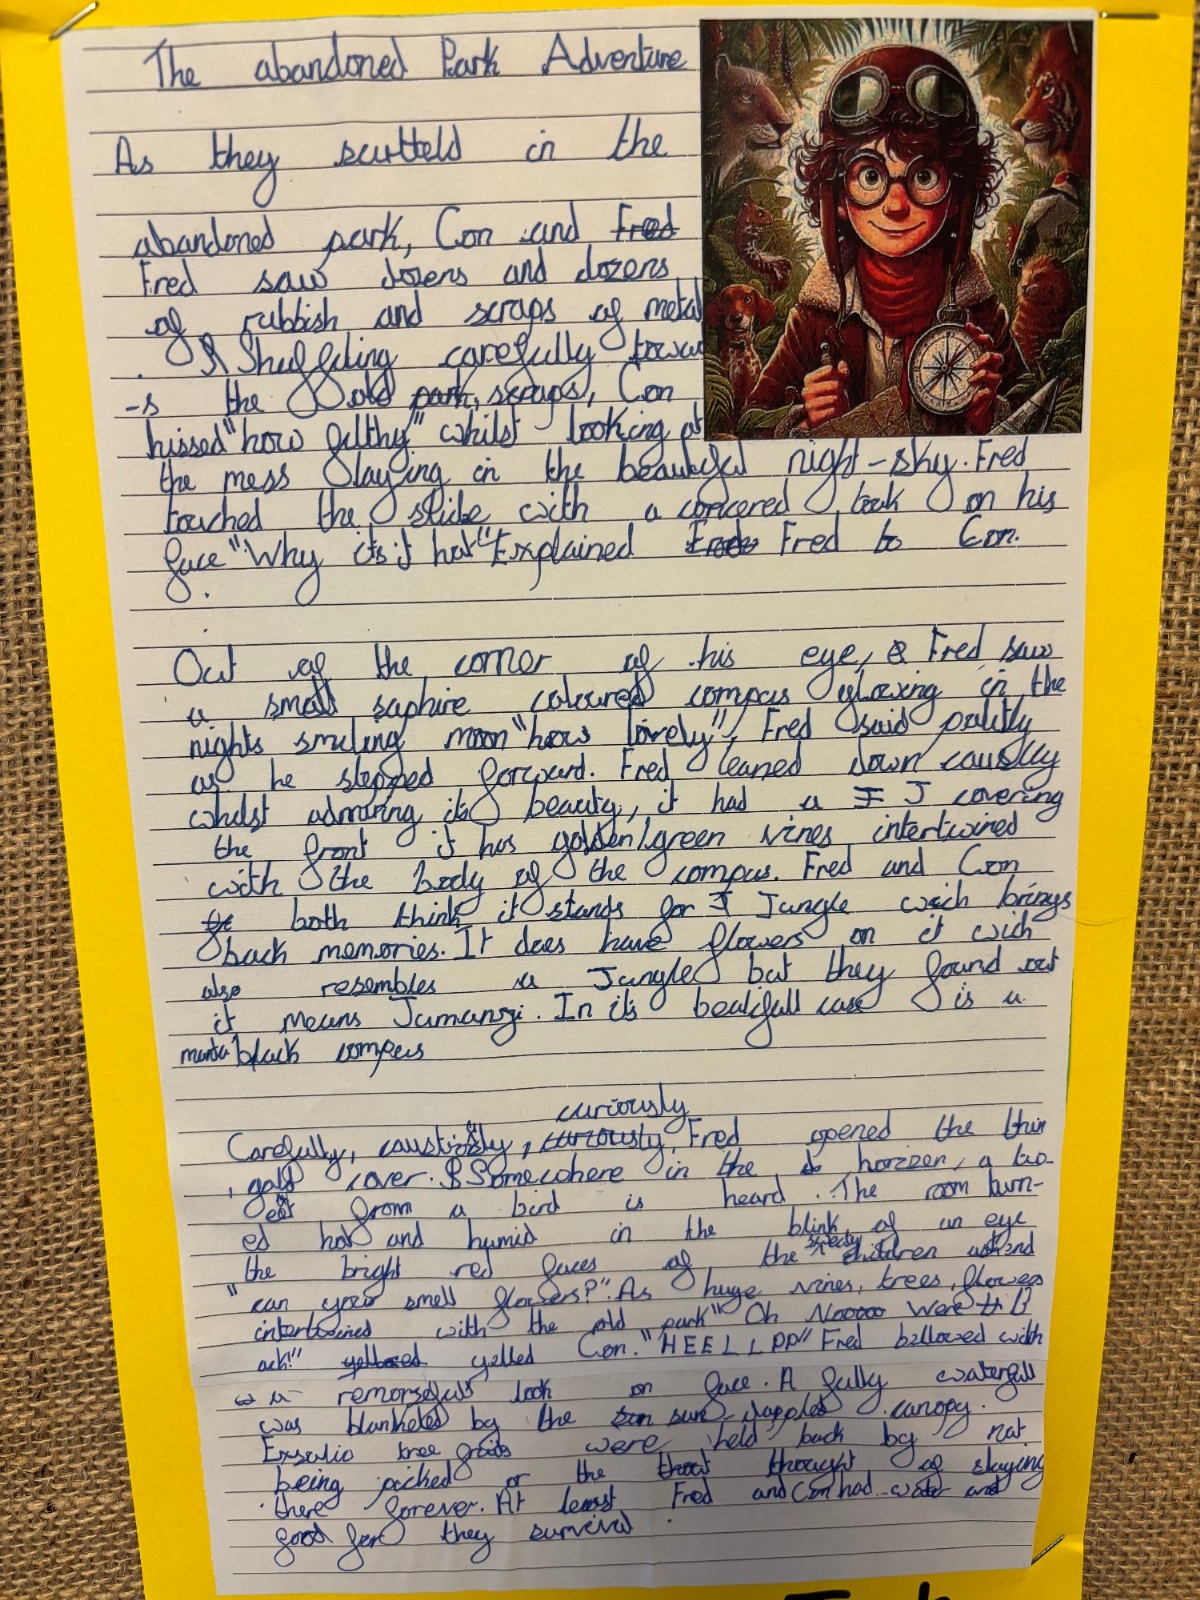 The abandoned Park Adventure
As they scutteld in the
abandoned park, Con and Fred
Fred saw dozens and dozens
of rubbish and scraps of metal
. Shuffeling carefully towar
-s the old park, scraps, Con
hissed "how filthy" whilst looking at
the mess laying in the beautiful night-sky. Fred
touched the slide with a concered look on his
face "Why its it hot" Explained Fred to Con.
Out of the corner of his eye, Fred saw
a small saphire coloured compus glowing in the
nights smiling moon "how lovely", Fred said politly
as he stepped forward. Fred leaned down causlly
whilst admiring its beauty, it had a J covering
the front it has golden/green vines intertwined
with the body of the compus. Fred and Con
both think it stands for J Jungle wich brings
back memories. It does have flowers on it wich
also resembles a Jungle but they found out
it means Jumanji. In it's beatifull case is a
black compus
curiously
Carefully, caustiosly, curiously, Fred opened the thin
, gold cover. Somewhere in the horizen, a two
from a bird is heard. The room turn-
ed hot and humid in the blink of an eye
the bright red faces of the sweaty children
"can you smell flowers?". As huge vines, trees, flowers
intertwined with the old park" Oh Nooooo Were
yelled Con. "HEELLPP" Fred bellowed with
a remorsefull look on face. A fully waterfall
was blanketed by the sun dapples canopy.
Exsolic tree fruits were held back by not
being picked or the thought of staying
there forever. At least Fred and Con had water and
good for they survival.